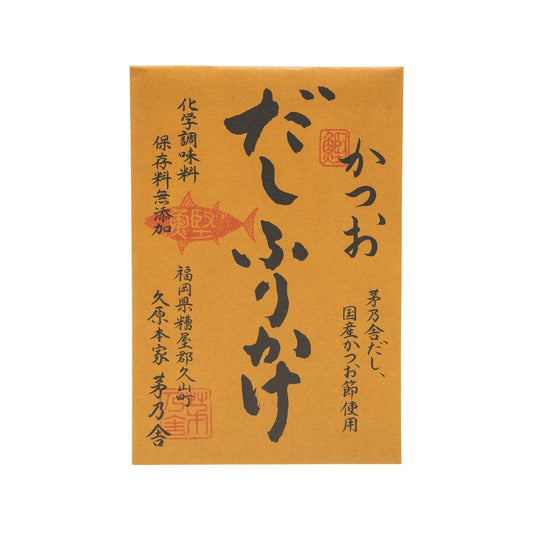 かつお
だしふりかけ
茅乃舎だし、
国産かつお節使用
化学調味料
保存料無添加
福岡県糟屋郡久山町
久原本家 茅乃舎
鰹
魚堅
茅乃舎